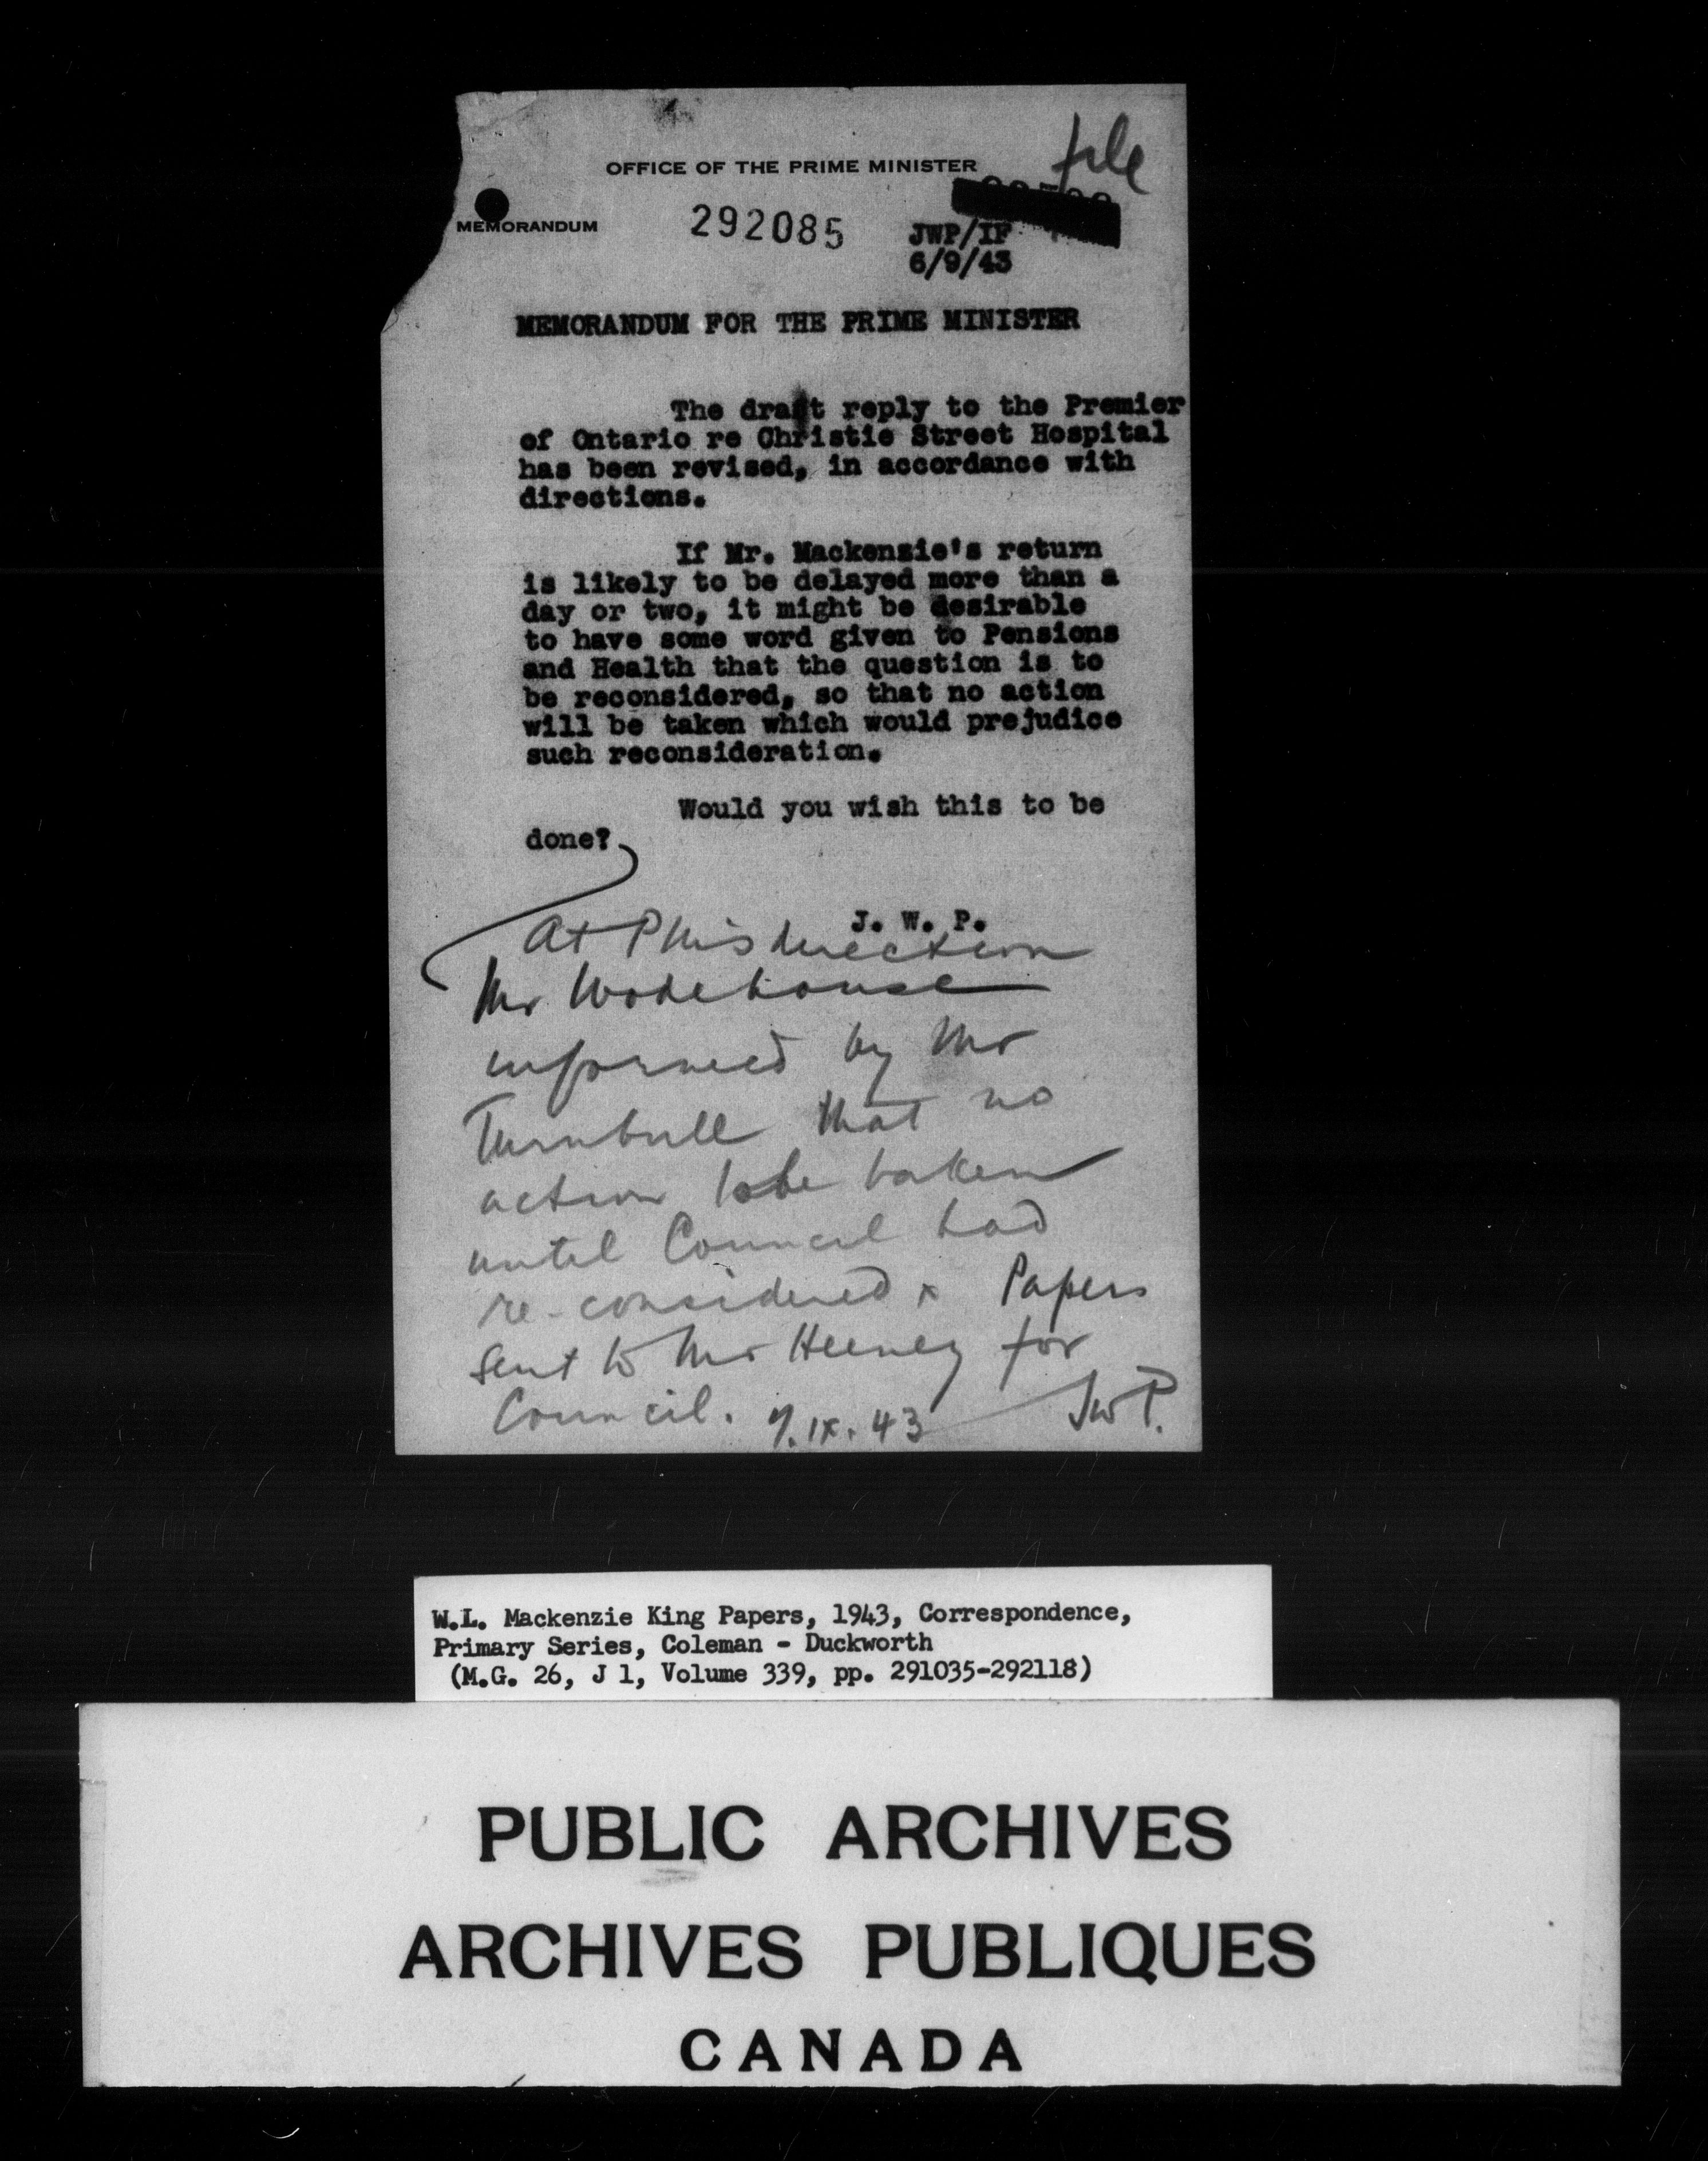 file
OFFICE OF THE PRIME MINISTER
MEMORANDUM
292085
JWP/IF
6/9/43
MEMORANDUM FOR THE PRIME MINISTER
The draft reply to the Premier
of Ontario re Christie Street Hospital
has been revised, in accordance with
directions.
If Mr. Mackenzie's return
is likely to be delayed more than a
day or two, it might be desirable
to have some word given to Pensions
and Health that the question is to
be reconsidered, so that no action
will be taken which would prejudice
such reconsideration.
Would you wish this to be
done?
J. W. P.
At PM's direction
Mr Wodehouse
informed by Mr
Turnbull that no
action to be taken
until Council had
re-considered x Papers
sent to Mr Heeney for
Council. 7.ix.43 JWP.
W.L. Mackenzie King Papers, 1943, Correspondence,
Primary Series, Coleman - Duckworth
(M.G. 26, J 1, Volume 339, pp. 291035-292118)
PUBLIC ARCHIVES
ARCHIVES PUBLIQUES
CANADA